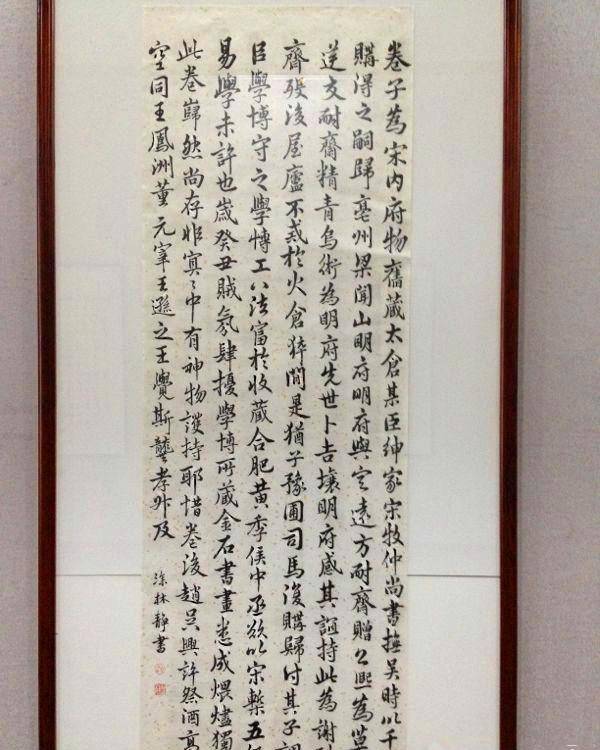 卷子為宋內府物舊藏太倉某臣紳家宋牧仲尚書撫吳時以千
購得之嗣歸亳州梁聞山明府明府與定遠方耐齋贈公熙為莫
逆交耐齋精青烏術為明府先世卜吉壤明府感其誼持此為謝耐
齋歿後屋廬不戒於火倉猝間是猶子豫圃司馬復購歸付其子調
臣學博守之學博工八法富於收藏合肥黃季侯中丞欲以宋槧五經
易學未許也歲癸丑賊氛肆擾學博所藏金石書畫悉成煨燼獨
此卷巋然尚存非冥冥中有神物護持耶惜卷後趙吳興許祭酒高
空同王鳳洲董元宰王遜之王覺斯龔孝升及
涂林靜書